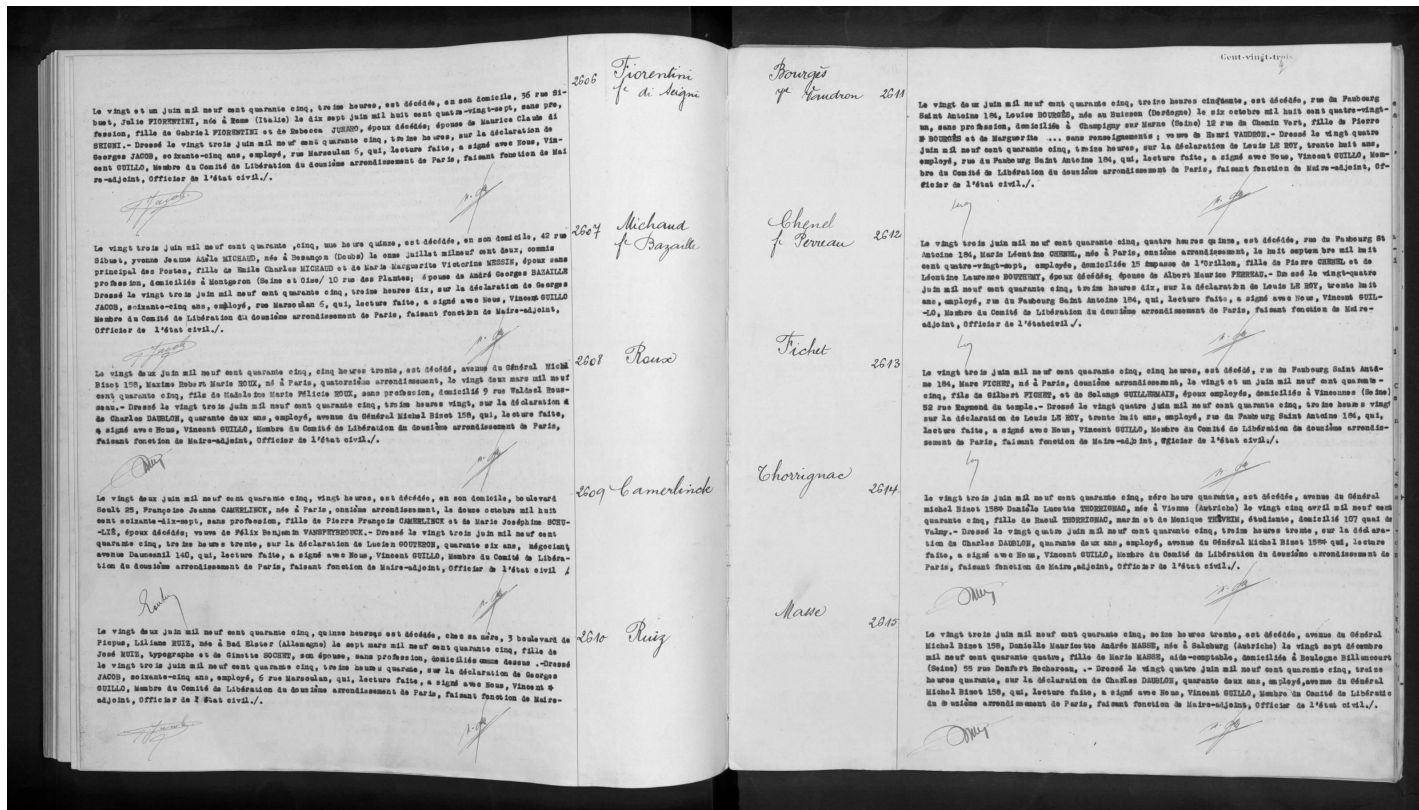 2606 Fiorentini
fe di Seigni
Le vingt et un juin mil neuf cent quarante cinq, treize heures, est décédée, en son domicile, 36 rue Si-
buet, Julie FIORENTINI, née à Rome (Italie) le dix sept juin mil huit cent quatre-vingt-sept, sans pro
fession, fille de Gabriel FIORENTINI et de Rebecca JUNARO, époux décédés; épouse de Maurice Claude di
SEIGNI.- Dressé le vingt trois juin mil neuf cent quarante cinq, treize heures, sur la déclaration de
Georges JACOB, soixante-cinq ans, employé, rue Marsoulan 6, qui, lecture faite, a signé avec Nous, Vin-
cent GUILLO, Membre du Comité de Libération du douzième arrondissement de Paris, faisant fonction de Mai
re-adjoint, Officier de l'état civil./.
2607 Michaud
fe Bazaille
Le vingt trois juin mil neuf cent quarante ,cinq, une heure quinze, est décédée, en son domicile, 42 rue
Sibuet, yvonne Jeanne Adèle MICHAUD, née à Besançon (Doubs) le onze juillet milneuf cent deux, commis
principal des Postes, fille de Emile Charles MICHAUD et de Marie Marguerite Victorine MESSIN, époux sans
profession, domiciliés à Montgeron (Seine et Oise/ 10 rue des Plantes; épouse de André Georges BAZAILLE
Dressé le vingt trois juin mil neuf cent quarante cinq, treize heures dix, sur la déclaration de Georges
JACOB, soixante-cinq ans, employé, rue Marsoulan 6, qui, lecture faite, a signé avec Nous, Vincent GUILLO
Membre du Comité de Libération du douzième arrondissement de Paris, faisant fonction de Maire-adjoint,
Officier de l'état civil./.
2608 Roux
Le vingt deux juin mil neuf cent quarante cinq, cinq heures trente, est décédé, avenue du Général Michel
Bizot 158, Maxime Robert Marie ROUX, né à Paris, quatorzième arrondissement, le vingt deux mars mil neuf
cent quarante cinq, fils de Madeleine Marie Félicie ROUX, sans profession, domicilié 9 rue Waldeck Rous-
seau.- Dressé le vingt trois juin mil neuf cent quarante cinq, treize heures vingt, sur la déclaration
de Charles DAUBLON, quarante deux ans, employé, avenue du Général Michel Bizot 158, qui, lecture faite,
a signé avec Nous, Vincent GUILLO, Membre du Comité de Libération du douzième arrondissement de Paris,
faisant fonction de Maire-adjoint, Officier de l'état civil./.
2609 Camerlinck
Le vingt deux juin mil neuf cent quarante cinq, vingt heures, est décédée, en son domicile, boulevard
Soult 25, Françoise Jeanne CAMERLINCK, née à Paris, onzième arrondissement, le douze octobre mil huit
cent soixante-dix-sept, sans profession, fille de Pierre François CAMERLINCK et de Marie Joséphine SCHU-
-LIÉ, époux décédés; veuve de Félix Benjamin VANSPEYBROUCK.- Dressé le vingt trois juin mil neuf cent
quarante cinq, treize heures trente, sur la déclaration de Lucien GOUTERON, quarante six ans, négociant
avenue Daumesnil 140, qui, lecture faite, a signé avec Nous, Vincent GUILLO, Membre du Comité de Libéra-
tion du douzième arrondissement de Paris, faisant fonction de Maire-adjoint, Officier de l'état civil
2610 Ruiz
Le vingt deux juin mil neuf cent quarante cinq, quinze heures, est décédée, chez sa mère, 3 boulevard de
Picpus, Liliane RUIZ, née à Bad Elster (Allemagne) le sept mars mil neuf cent quarante cinq, fille de
José RUIZ, typographe et de Ginette SOCHET, son épouse, sans profession, domiciliés comme dessus .-Dressé
le vingt trois juin mil neuf cent quarante cinq, treize heures quarante, sur la déclaration de Georges
JACOB, soixante-cinq ans, employé, 6 rue Marsoulan, qui, lecture faite, a signé avec Nous, Vincent
GUILLO, Membre du Comité de Libération du douzième arrondissement de Paris, faisant fonction de Maire-
adjoint, Officier de l'état civil./.
Cent-vingt-trois
Bourgès
ve Vaudron 2611
Le vingt deux juin mil neuf cent quarante cinq, treize heures cinquante, est décédée, rue du Faubourg
Saint Antoine 184, Louise BOURGÈS, née au Buisson (Dordogne) le six octobre mil huit cent quatre-vingt-
un, sans profession, domiciliée à Champigny sur Marne (Seine) 12 rue du Chemin Vert, fille de Pierre
BOURGÈS et de Marguerite ... sans renseignements ; veuve de Henri VAUDRON.- Dressé le vingt quatre
juin mil neuf cent quarante cinq, treize heures, sur la déclaration de Louis LE ROY, trente huit ans,
employé, rue du Faubourg Saint Antoine 184, qui, lecture faite, a signé avec Nous, Vincent GUILLO, Mem-
bre du Comité de Libération du douzième arrondissement de Paris, faisant fonction de Maire-adjoint, Of-
ficier de l'état civil./.
Chenel
fe Perreau 2612
Le vingt trois juin mil neuf cent quarante cinq, quatre heures quinze, est décédée, rue du Faubourg St
Antoine 184, Marie Léontine CHENEL, née à Paris, onzième arrondissement, le huit septembre mil huit
cent quatre-vingt-sept, employée, domiciliée 15 impasse de l'Orillon, fille de Pierre CHENEL et de
Léontine Laurence BOUTHEMY, époux décédés; épouse de Albert Maurice PERREAU.- Dressé le vingt-quatre
juin mil neuf cent quarante cinq, treize heures dix, sur la déclaration de Louis LE ROY, trente huit
ans, employé, rue du Faubourg Saint Antoine 184, qui, lecture faite, a signé avec Nous, Vincent GUIL-
-LO, Membre du Comité de Libération du douzième arrondissement de Paris, faisant fonction de Maire-
adjoint, Officier de l'étatcivil./.
Fichet
2613
Le vingt trois juin mil neuf cent quarante cinq, cinq heures, est décédé, rue du Faubourg Saint Antoi-
ne 184, Marc FICHET, né à Paris, douzième arrondissement, le vingt et un juin mil neuf cent quarante-
cinq, fils de Gilbert FICHET, et de Solange GUILLERMAIN, époux employés, domiciliés à Vincennes (Seine)
52 rue Raymond du temple.- Dressé le vingt quatre juin mil neuf cent quarante cinq, treize heures vingt
sur la déclaration de Louis LE ROY, trente huit ans, employé, rue du Faubourg Saint Antoine 184, qui,
lecture faite, a signé avec Nous, Vincent GUILLO, Membre du Comité de Libération du douzième arrondis-
sement de Paris, faisant fonction de Maire-adjoint, Officier de l'état civil./.
Thorrignac
2614
le vingt trois juin mil neuf cent quarante cinq, zéro heure quarante, est décédée, avenue du Général
michel Bizot 158 Danièle Lucette THORRIGNAC, née à Vienne (Autriche) le vingt cinq avril mil neuf cent
quarante cinq, fille de Raoul THORRIGNAC, marin et de Monique THÉVEIM, étudiante, domicilié 107 quai de
Valmy.- Dressé le vingt quatre juin mil neuf cent quarante cinq, treize heures trente, sur la déclara-
tion de Charles DAUBLON, quarante deux ans, employé, avenue du Général Michel Bizot 158 qui, lecture
faite, a signé avec Nous, Vincent GUILLO, Membre du Comité de Libération du douzième arrondissement de
Paris, faisant fonction de Maire,adjoint, Officier de l'état civil./.
Masse
2615
Le vingt trois juin mil neuf cent quarante cinq, seize heures trente, est décédée, avenue du Général
Michel Bizot 158, Danielle Mauricette Andrée MASSE, née à Salzburg (Autriche) le vingt sept décembre
mil neuf cent quarante quatre, fille de Marie MASSE, aide-comptable, domiciliée à Boulogne Billancourt
(Seine) 55 rue Denfert Rochereau, .- Dressé le vingt quatre juin mil neuf cent quarante cinq, treize
heures quarante, sur la déclaration de Charles DAUBLON, quarante deux ans, employé,avenue du Général
Michel Bizot 158, qui, lecture faite, a signé avec Nous, Vincent GUILLO, Membre du Comité de Libératio
du douzième arrondissement de Paris, faisant fonction de Maire-adjoint, Officier de l'état civil./.